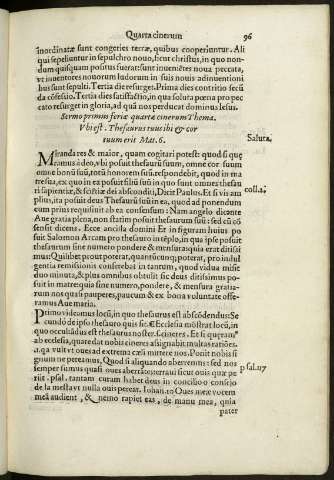 Quarta cinerum 96
inordinatæ sunt congeries terræ, quibus cooperiuntur. Ali
qui sepeliuntur in sepulchro nouo, sicut christus, in quo non-
dum quisquam positus fuerat: sunt inuentores noua peccata,
vt inuentores nouorum ludorum in suis nouis adinuentioni
bus sunt sepulti. Tertia die resurget. Prima dies contritio secū
da cōfessio. Tertia dies satisfactio, in qua soluta pœna pro pec
cato resurget in gloria, ad quā nos perducat dominus Iesus.
Sermo primus feriæ quartæ cinerum Thema.
Vbi est Thesaurus tuus ibi & cor
tuum erit Mat. 6.
Saluta.
Miranda res & maior, quam cogitari potest: quod si que
ramus a deo, vbi posuit thesaurū suum, omne cor suum
omne bonū suū, totū honorem suū, respondebit, quod in ma
tre sua, ex quo in ea posuit filiū suū in quo sunt omnes thesau
ri sapientiæ, & sciētiæ dei absconditi, Dicit Paulus. Et si vis am
colla.2
plius, ita posuit deus Thesaurū suū in ea, quod ad ponendum
cum prius requisiuit ab ea consensum: Nam angelo dicante
Aue gratia plena, non statim posuit thesaurum suū: sed cū cō
sensit dicens. Ecce ancilla domini Et in figuram huius po
suit Salomon Arcam pro thesauro in tēplo, in qua ipse posuit
thesaurum sine numero pondere & mensura: quia erat ditissi
mus: Quilibet prout poterat, quantūcunq; poterat, pro indul
gentia remissionis consrebat in tantum, quod vidua misit
duo minuta, & plus omnibus obtulit sic deus ditissimus po-
suit in matre: quia sine numero, pondere, & mensura gratia-
rum nos quasi pauperes, paucum & ex bona voluntate offe-
ramus Aue maria.
Primo videamus locū, in quo thesaurus est abscōdendus: Se
cundo de ipso thesauro quis sit. Ecclesia mōstrat locū, in
quo occuldadus est thesaurus noster. s. cineres. Et si queram9
ab ecclesia, quare dat nobis cineres: assignabit multas ratiōes.
1. qa vult vt oues ad extrema cæsi mittere iuos. Ponit nobis si
gnum ne pereamus. Quod si aliquando aberremus: sed nos
semper sumus quasi oues aberrātes: erraui sicut ouis quæ pe
psal.117
riit. psal. tantam curam habet deus in concilio o consejo
de la mesta vt nulla ouis pereat. Iohan.10 Oues meæ vocem
meā audient, & nemo rapiet eas, de manu mea, quia
pater